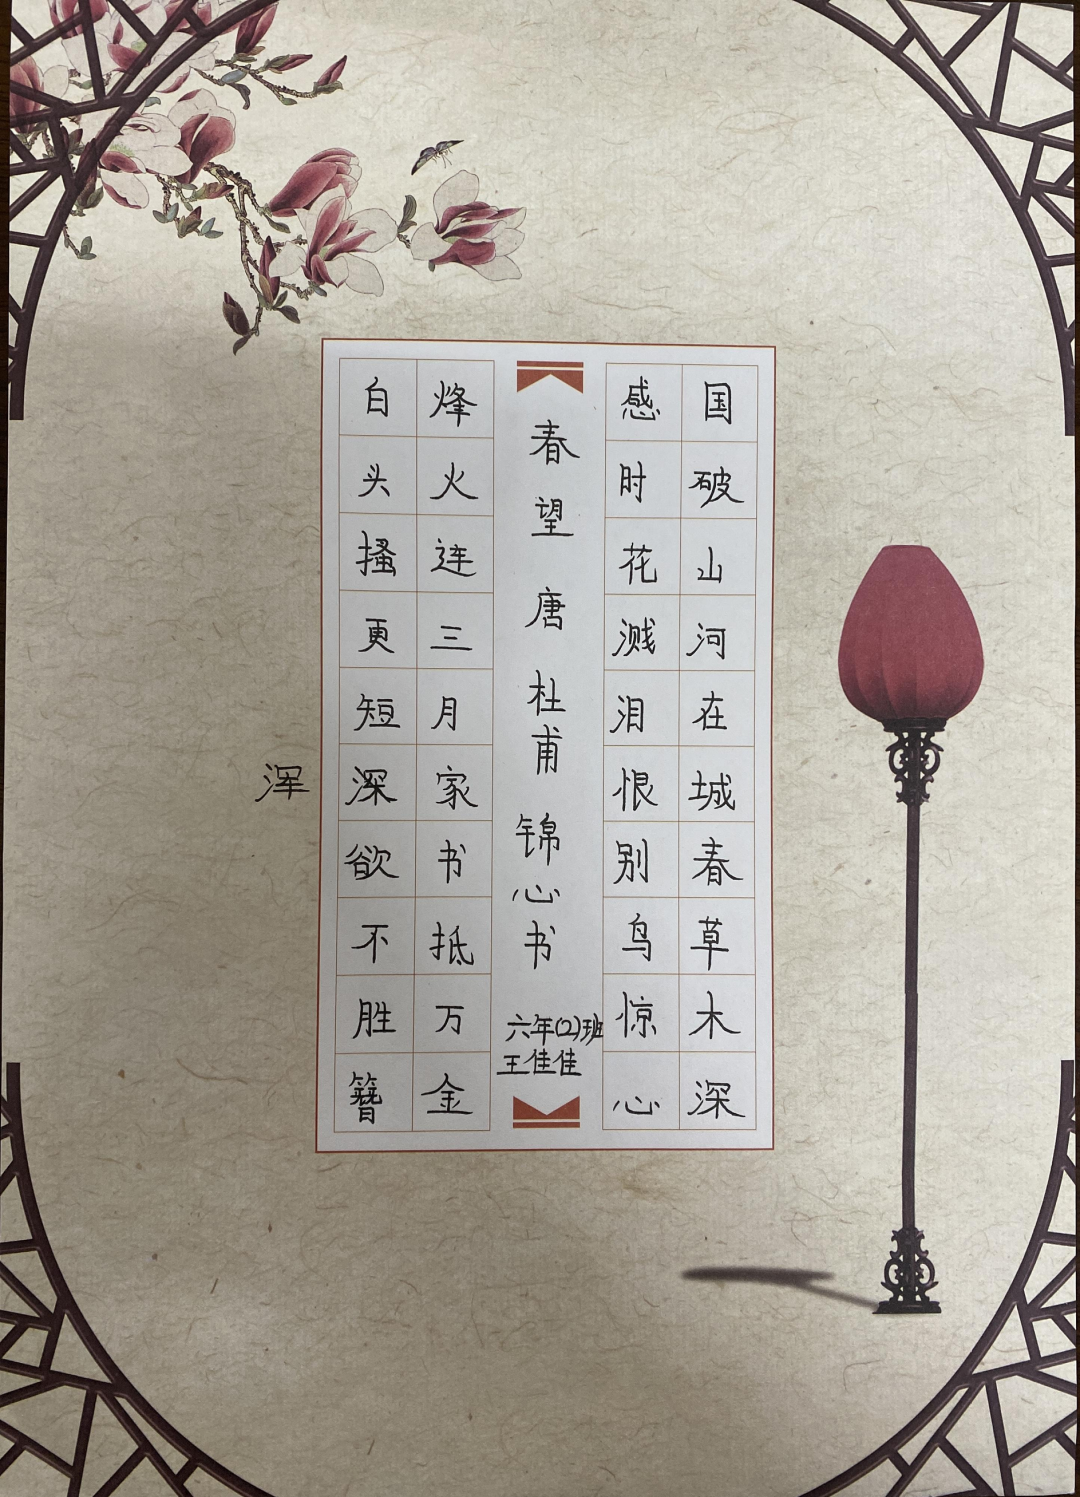 国破山河在城春草木深
感时花溅泪恨别鸟惊心
春望 唐 杜甫 锦心书
六年(2)班
王佳佳
烽火连三月家书抵万金
白头搔更短深欲不胜簪
浑